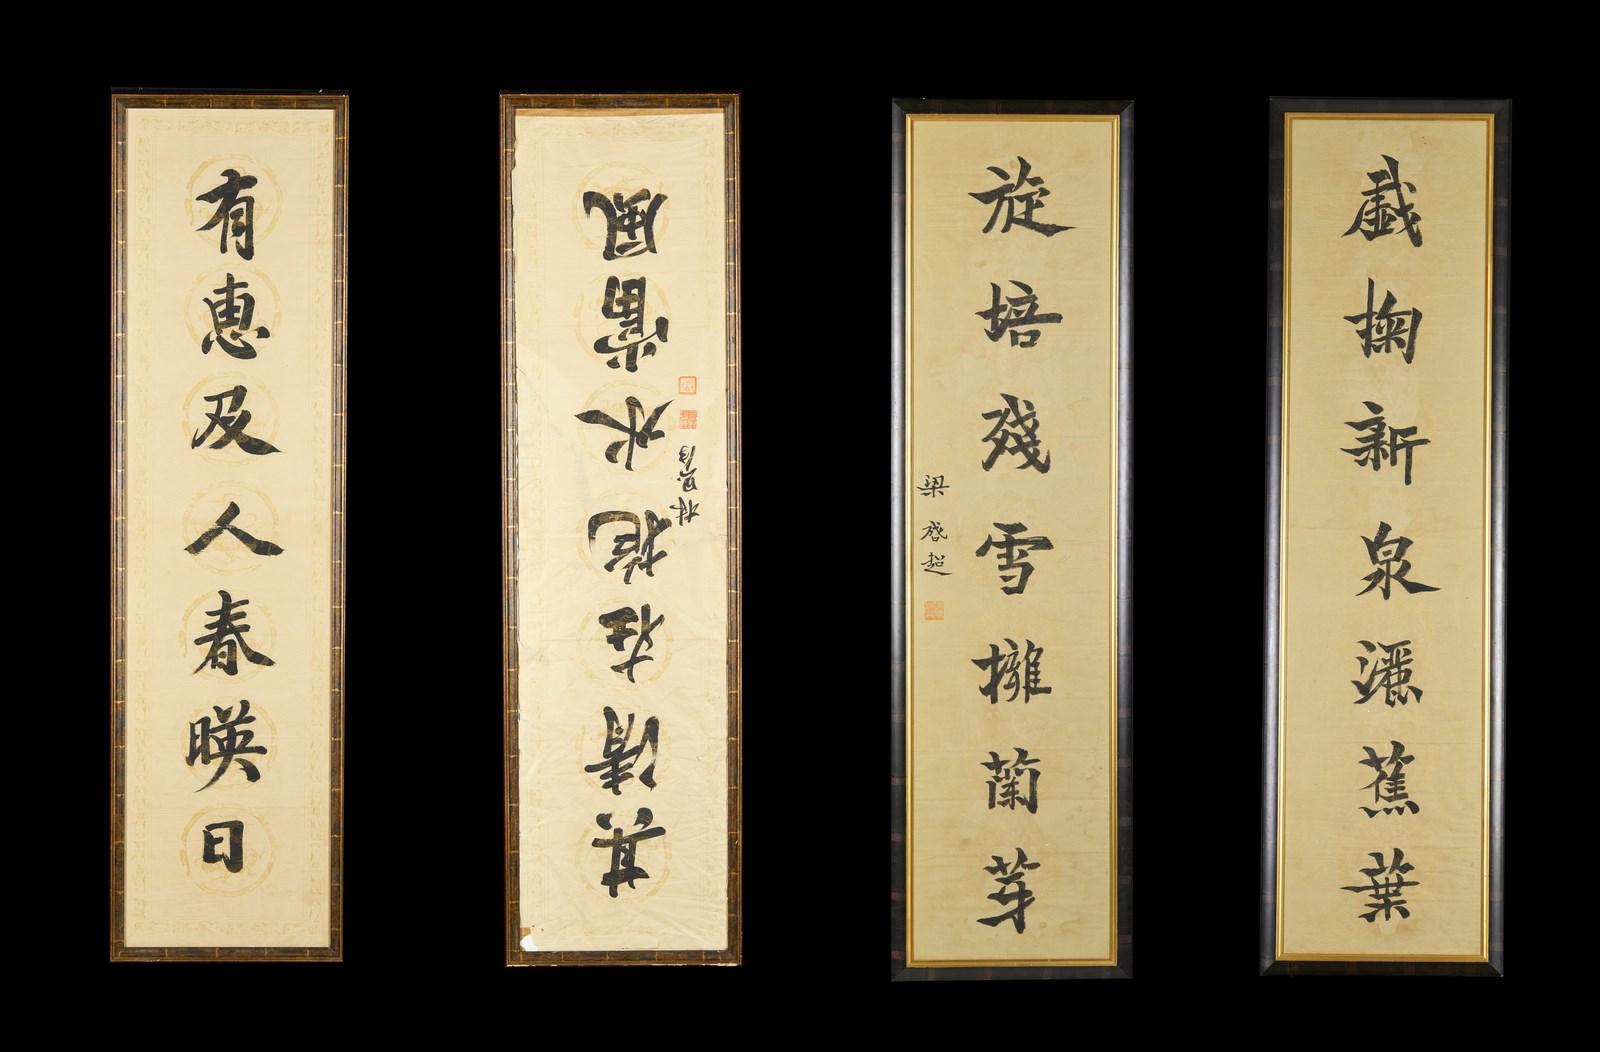 戲掬新泉灑蕉葉
旋培殘雪擁蘭芽
梁啓超
其清在抱水當風
有惠及人春暎日